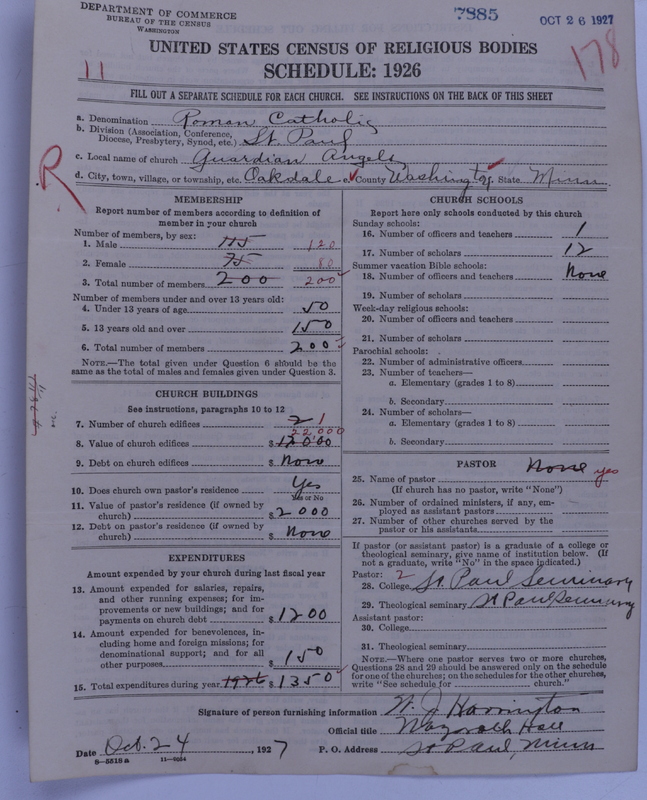 DEPARTMENT OF COMMERCE
BUREAU OF THE CENSUS
WASHINGTON
7885
OCT 26 1927
178
UNITED STATES CENSUS OF RELIGIOUS BODIES
11
SCHEDULE: 1926
FILL OUT A SEPARATE SCHEDULE FOR EACH CHURCH. SEE INSTRUCTIONS ON THE BACK OF THIS SHEET
R
a. Denomination Roman Catholic
b. Division (Association, Conference, Diocese, Presbytery, Synod, etc.) St. Paul
c. Local name of church Guardian Angels
d. City, town, village, or township, etc. Oakdale e. County Washington State Minn
MEMBERSHIP
Report number of members according to definition of
member in your church
Number of members, by sex:
1. Male 115 120
2. Female 75 80
3. Total number of members 200 200
Number of members under and over 13 years old:
4. Under 13 years of age 50
5. 13 years old and over 150
6. Total number of members 200
NOTE.—The total given under Question 6 should be the
same as the total of males and females given under Question 3.
CHURCH BUILDINGS
See instructions, paragraphs 10 to 12
7. Number of church edifices 2 1
22,000
8. Value of church edifices $12000
9. Debt on church edifices $None
10. Does church own pastor's residence Yes
Yes or No
11. Value of pastor's residence (if owned by
church) $2000
12. Debt on pastor's residence (if owned by
church) $None
EXPENDITURES
Amount expended by your church during last fiscal year
13. Amount expended for salaries, repairs,
and other running expenses; for im-
provements or new buildings; and for
payments on church debt $1200
14. Amount expended for benevolences, in-
cluding home and foreign missions; for
denominational support; and for all
other purposes $150
15. Total expenditures during year 1926 $1350
CHURCH SCHOOLS
Report here only schools conducted by this church
Sunday schools:
16. Number of officers and teachers 1
17. Number of scholars 12
Summer vacation Bible schools:
18. Number of officers and teachers None
19. Number of scholars
Week-day religious schools:
20. Number of officers and teachers
21. Number of scholars
Parochial schools:
22. Number of administrative officers
23. Number of teachers—
a. Elementary (grades 1 to 8)
b. Secondary
24. Number of scholars—
a. Elementary (grades 1 to 8)
b. Secondary
PASTOR
25. Name of pastor None yes
(If church has no pastor, write "None")
26. Number of ordained ministers, if any, em-
ployed as assistant pastors
27. Number of other churches served by the
pastor or his assistants
If pastor (or assistant pastor) is a graduate of a college or
theological seminary, give name of institution below. (If
not a graduate, write "No" in the space indicated.)
Pastor: 2
28. College St Paul Seminary
29. Theological seminary St Paul Seminary
Assistant pastor:
30. College
31. Theological seminary
NOTE.—Where one pastor serves two or more churches,
Questions 28 and 29 should be answered only on the schedule
for one of the churches; on the schedules for the other churches,
write "See schedule for church."
Signature of person furnishing information W. J. Harrington
Official title Nazareth Hall
Date Oct. 24, 1927 P. O. Address St Paul, Minn
8-5518a 11-9034